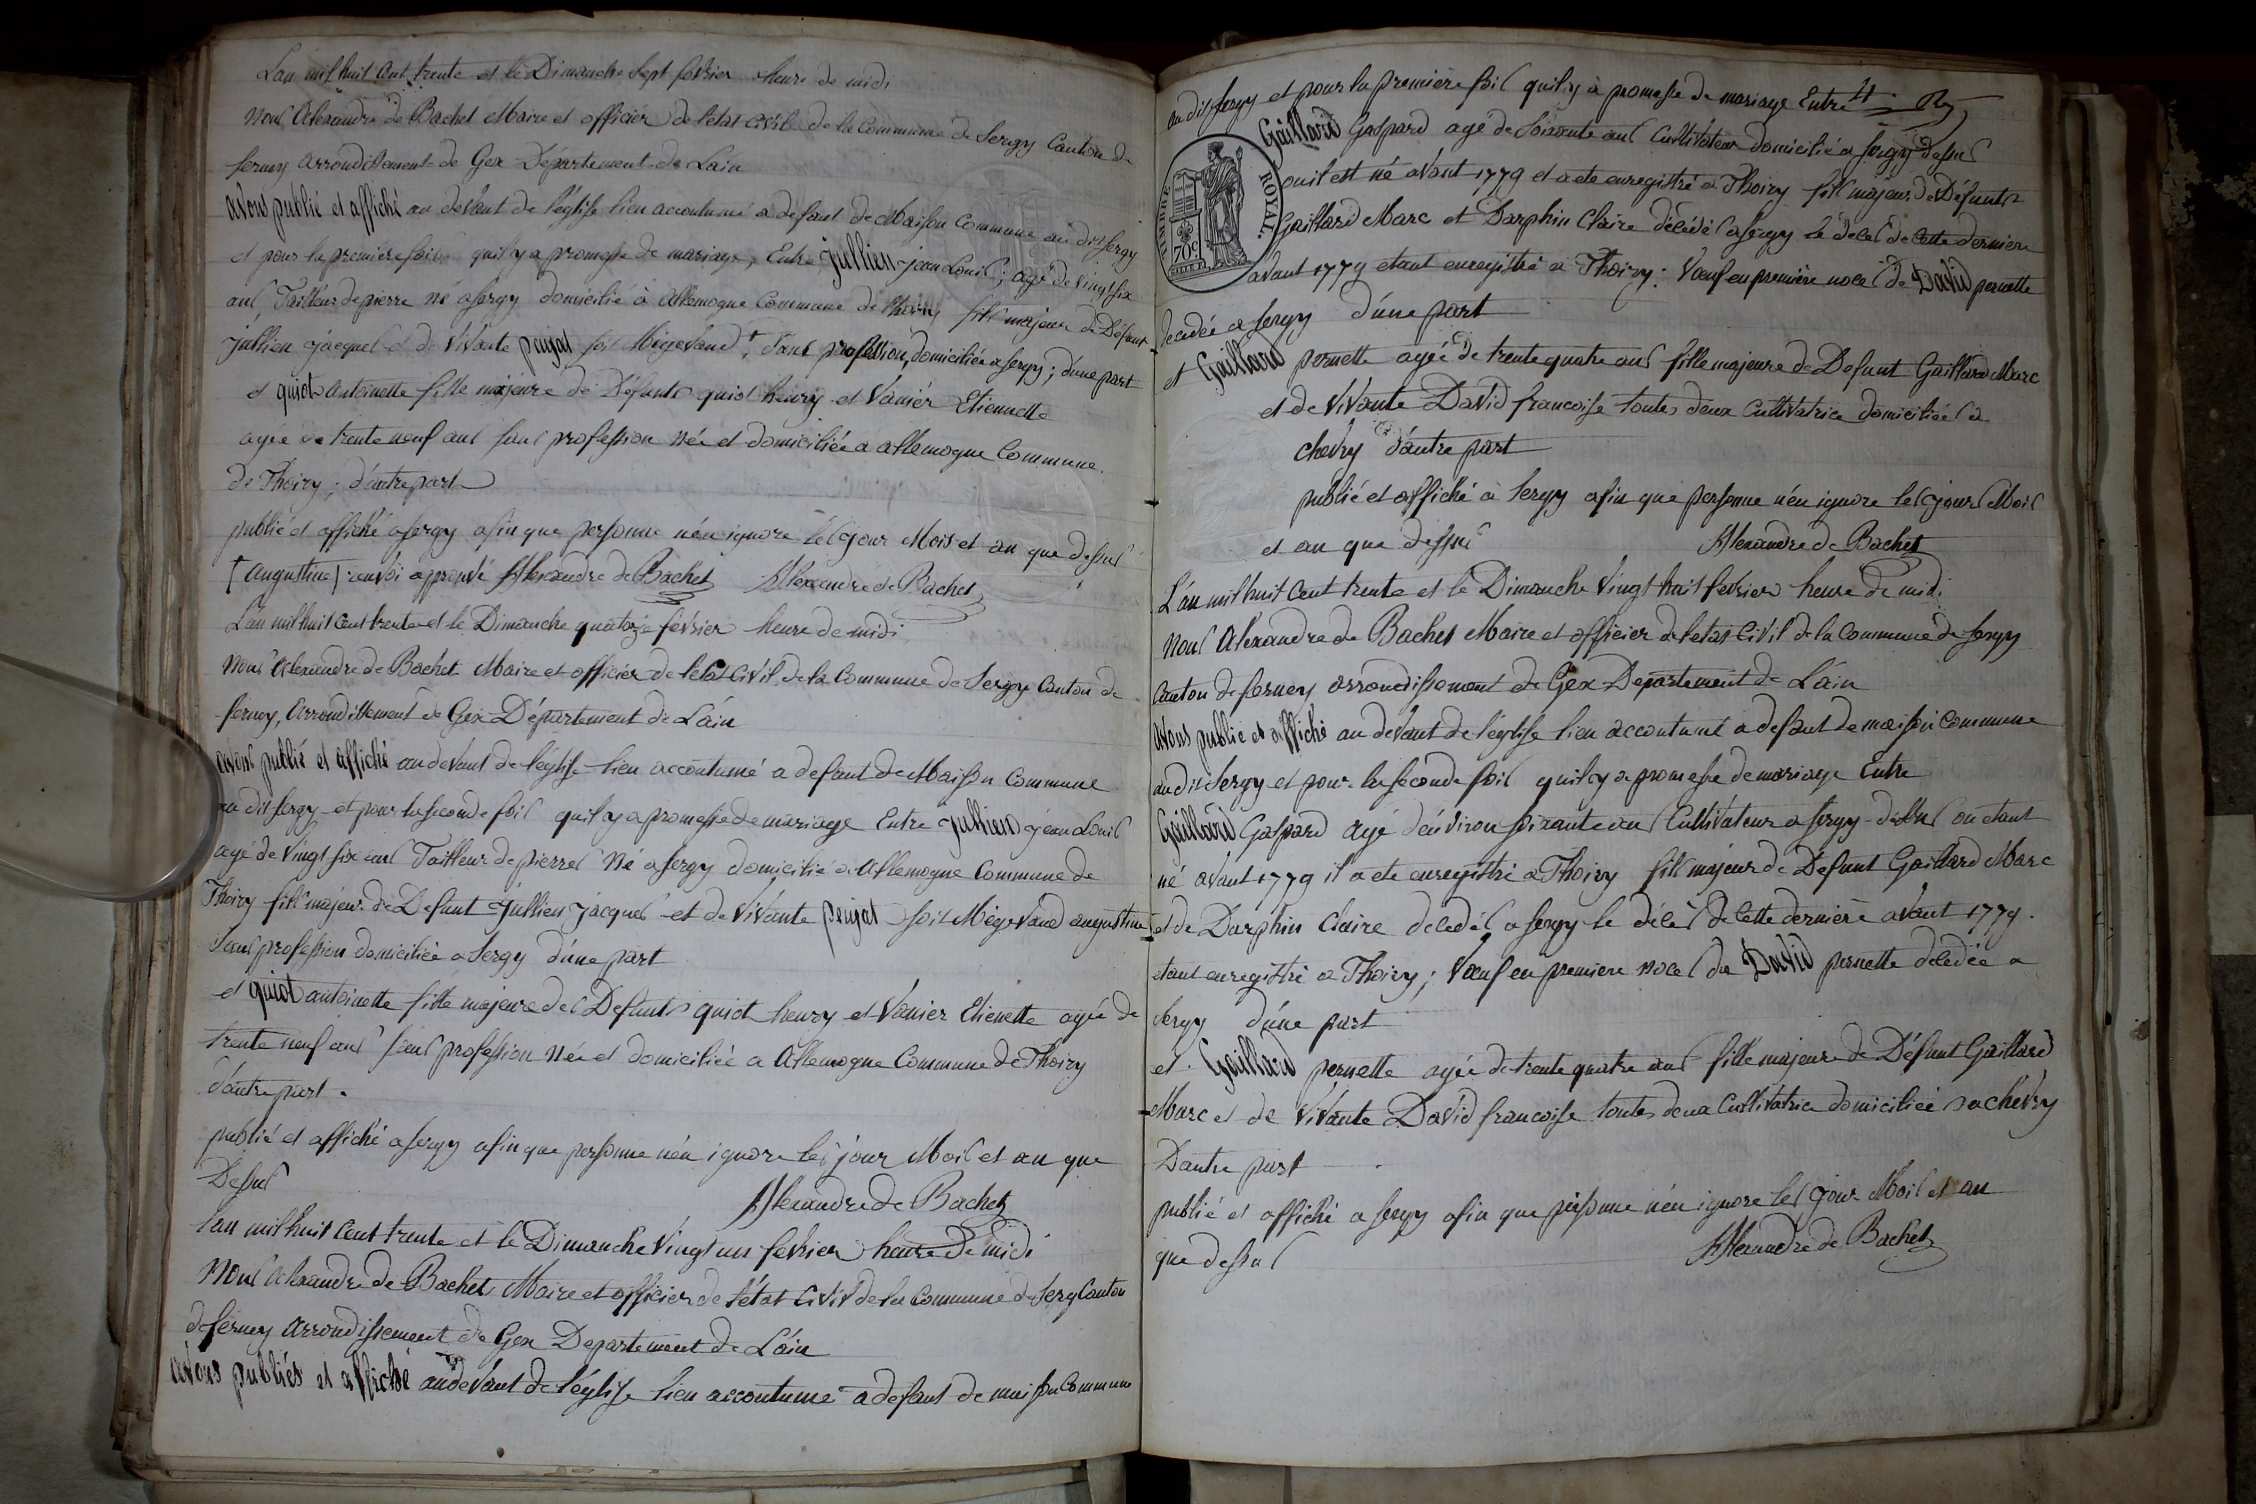 L'an mil huit cent trente et le Dimanche sept fevrier heure de midi
Nous Alexandre de Bachet Maire et officier de l'etat civil de la Commune de Sergy Canton de
ferney arrondissement de Gex Département de L'ain
avons publié et affiché au devant de l'église lieu accoutumé a defaut de Maison Commune au dit Sergy
et pour la premiere fois qu'il y a promesse de mariage, Entre Jullien Jean Louis; agé de vingt six
ans, Tailleur de pierre né a Sergy domicilié à Allemogne Commune de Thoiry fils majeur de Défunt
Jullien Jacques et de vivante pinjat soit Mégevand +, sans profession, domiciliée a Sergy; d'une part
et quiot antoinette fille majeure de Défunts quiot henry et Vanier Etiennette
agée de trente neuf ans sans profession née et domiciliée a allemogne Commune
de Thoiry; d'autre part
publié et affiché a Sergy afin que personne n'en ignore les jour Mois et an que dessus
[augustine] renvoi approuvé Alexandre de Bachet Alexandre de Bachet
L'an mil huit cent trente et le Dimanche quatorze février heure de midi
Nous Alexandre de Bachet Maire et officier de l'etat civil de la Commune de Sergy Canton de
ferney, arrondissement de Gex Département de L'ain
avons publié et affiché au devant de l'église lieu accoutumé a defaut de Maison Commune
au dit Sergy et pour la seconde fois qu'il y a promesse de mariage Entre Jullien Jean Louis
agé de vingt six ans Tailleur de pierres né a Sergy domicilié a Allemogne Commune de
Thoiry fils majeur de Defunt Jullien Jacques et de vivante pinjat soit Mégevand augustine
sans profession domiciliée a Sergy d'une part
et quiot antoinette fille majeure des Defunts quiot henry et Vanier Etienette agée de
trente neuf ans sans profession née et domiciliée a Allemogne Commune de Thoiry
d'autre part.
publié et affiché a Sergy afin que personne n'en ignore les jour Mois et an que
Dessus
Alexandre de Bachet
L'an mil huit cent trente et le Dimanche vingt un fevrier heure de midi
Nous Alexandre de Bachet Maire et officier de l'état civil de la Commune de Sergy Canton
de ferney arrondissement de Gex Departement de L'ain
avons publiés et affiché au devant de l'église lieu accoutumé a defaut de maison Commune
au dit Sergy et pour la premiere fois qu'il y à promesse de mariage Entre
TIMBRE ROYAL.
70c
Gaillard Gaspard agé de soixante ans Cultivateur domicilié a Sergy dessus
ou il est né avant 1779 et a ete enregistré a Thoiry fils majeur de Défunts
Gaillard Marc et Darphin Claire décédés a Sergy le décés de cette derniere
avant 1779 etant enregistré a Thoiry: Vœuf en première noces de David pernette
décédée a Sergy d'une part
et Gaillard pernette agée de trente quatre ans fille majeure de Defunt Gaillard Marc
et de vivante David francoise toutes deux Cultivatrice domiciliées à
chevry d'autre part
publié et affiché à Sergy afin que personne n'en ignore les jour Mois
et an que dessus
Alexandre de Bachet
L'an mil huit cent trente et le Dimanche vingt huit fevrier heure de midi
Nous Alexandre de Bachet Maire et officier de l'etat civil de la Commune de Sergy
Canton de ferney arrondissement de Gex Departement de L'ain
avons publié et affiché au devant de l'église lieu accoutumé a defaut de maison Commune
au dit Sergy et pour la seconde fois qu'il y a promesse de mariage Entre
Gaillard Gaspard agé d'environ soixante ans Cultivateur a Sergy dessus ou etant
né avant 1779 il a ete enregistré a Thoiry fils majeur de Defunt Gaillard Marc
et de Darphin Claire décédés a Sergy le décés de cette derniere avant 1779.
etant enregistré a Thoiry; Vœuf en premiere noces de David pernette décédée a
Sergy d'une part
et Gaillard pernette agée de trente quatre ans fille majeure de Défunt Gaillard
Marc et de vivante David francoise toutes deux Cultivatrice domiciliées a chevry
D'autre part
publié et affiché a Sergy afin que personne n'en ignore les jour Mois et an
que dessus
Alexandre de Bachet